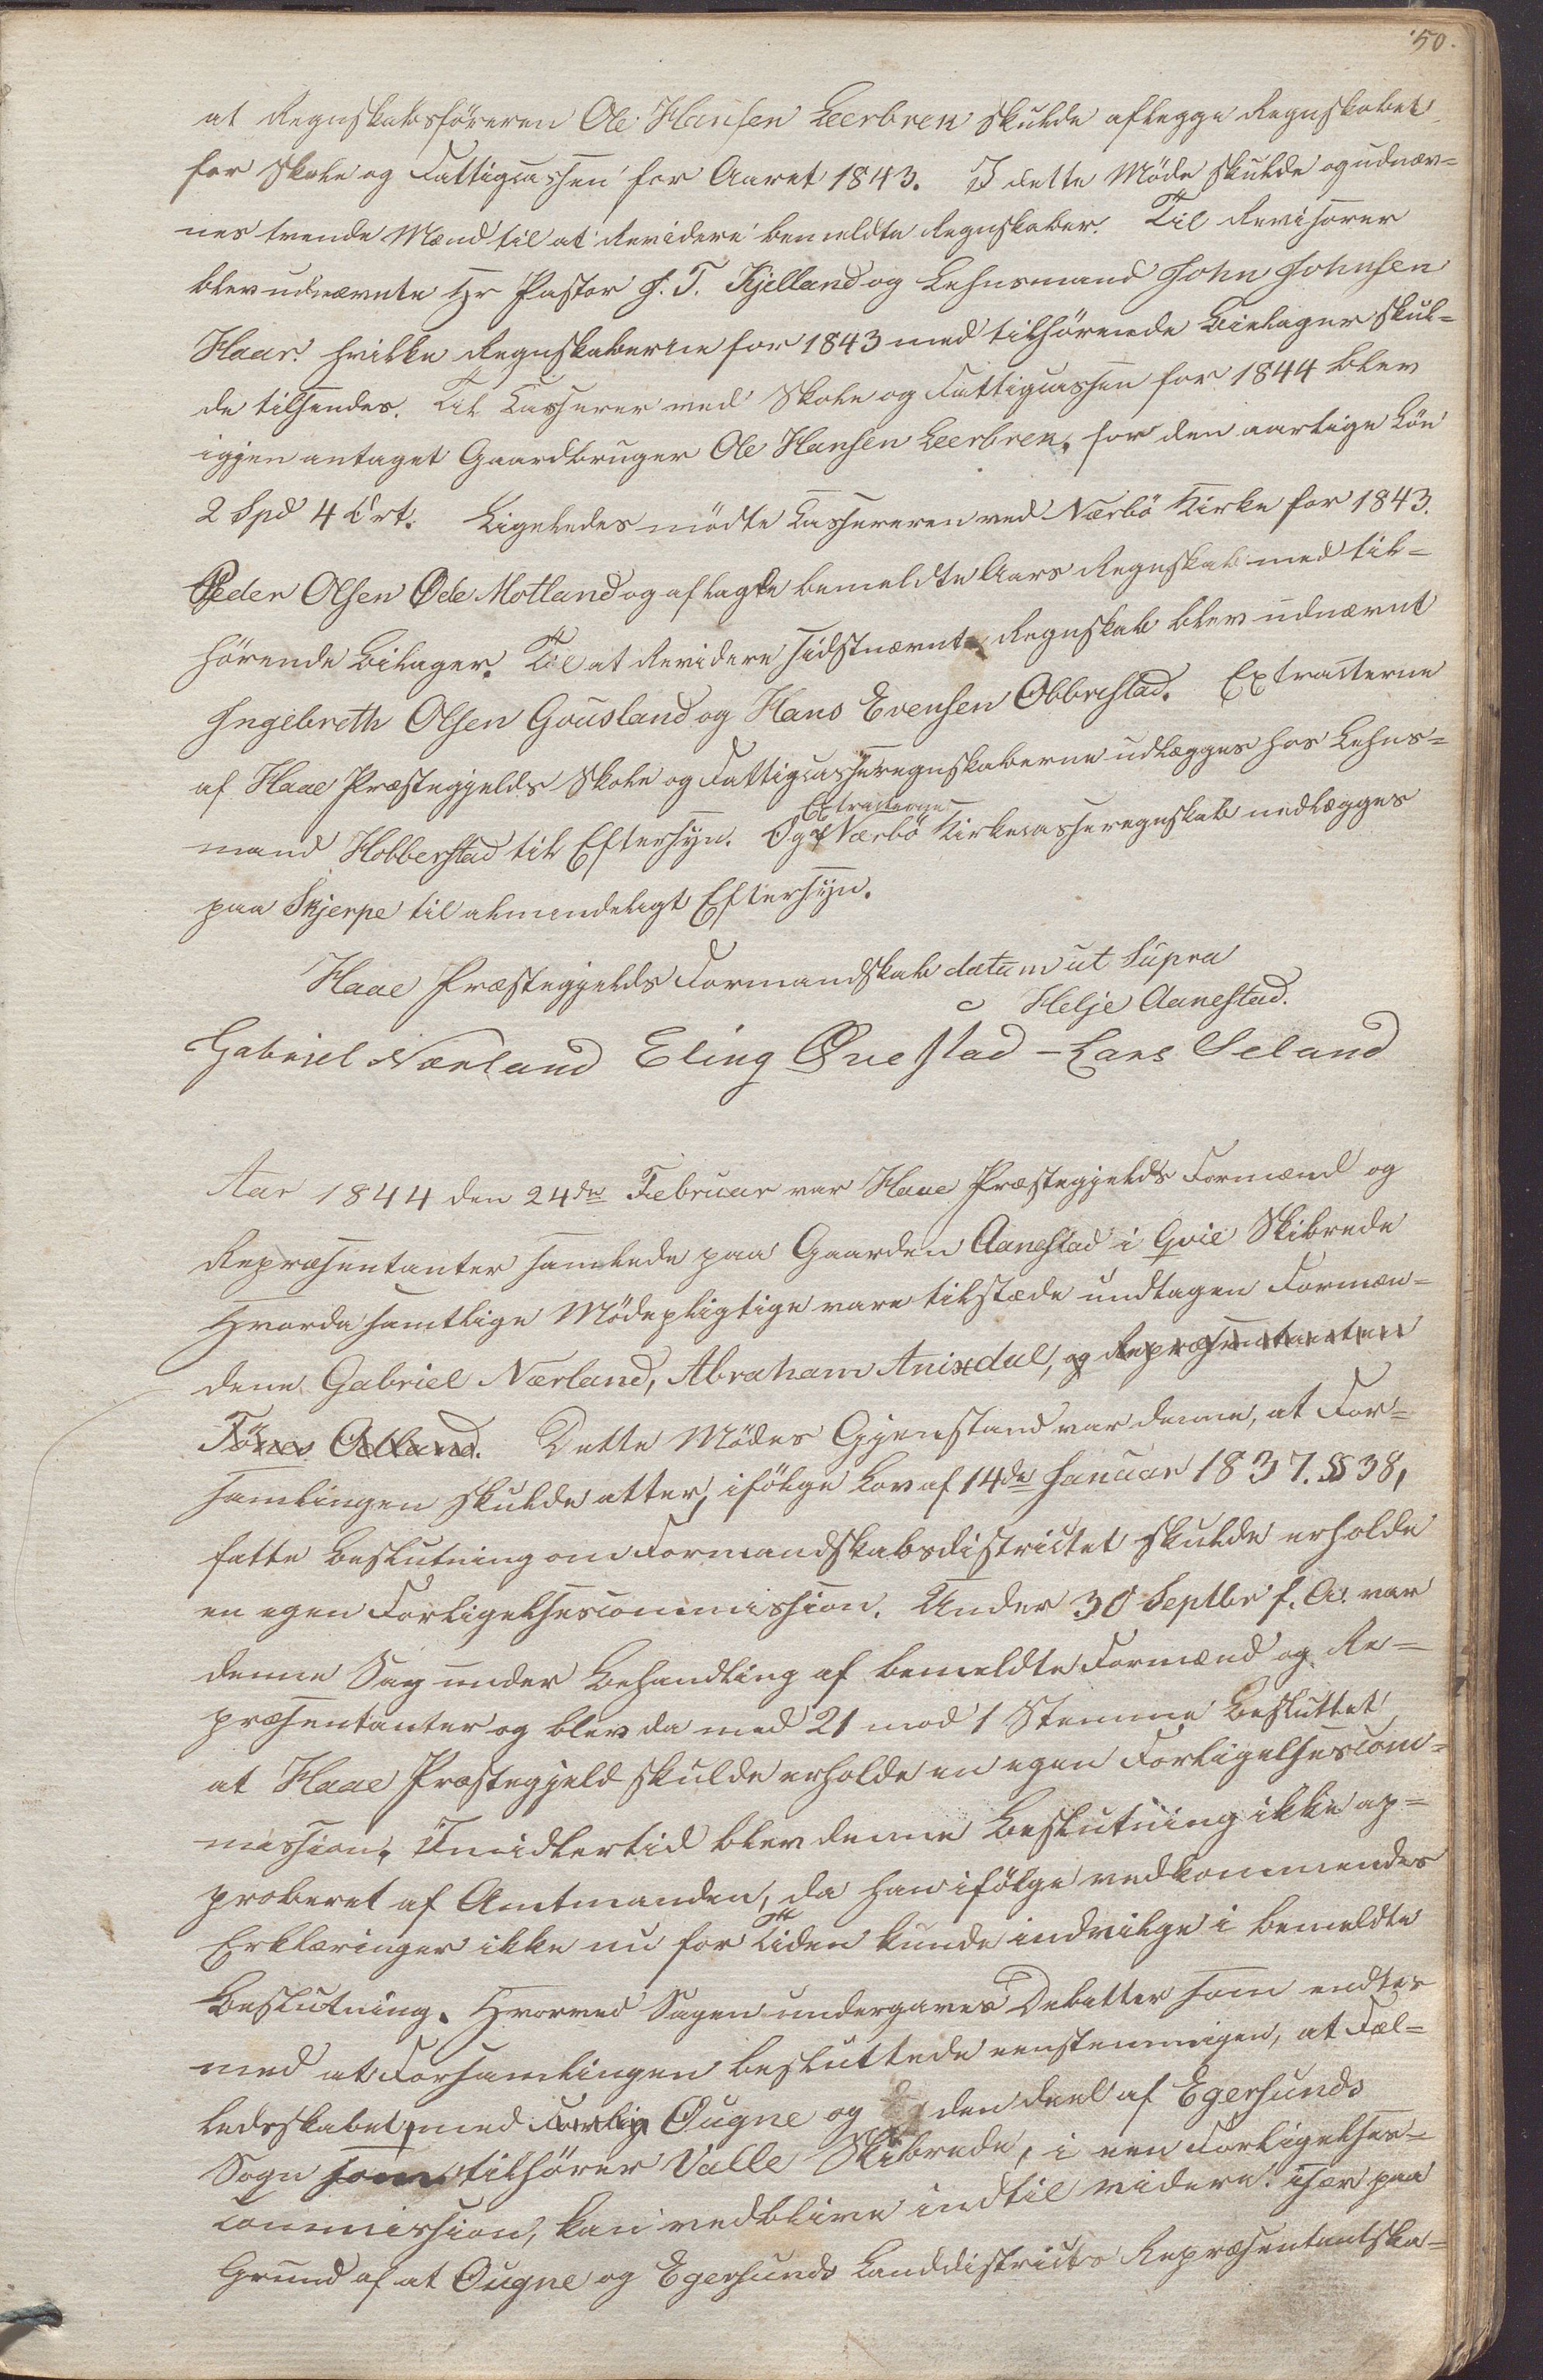 50.
at Regnskabsföreren Ole Hansen Leerbrek skulde aflegge Regnskabet
for Skole og Fattigcassen for Aaret 1843. I dette Möde skulde og udnæv=
nes tvende Mænd til at Revidere bemeldte Regnskaber. Til Revisorer
blev udnævnte Hr Pastor J. T. Kjelland og Lehnsmand John Johnsen
Haar. hvilke Regnskaberne for 1843 med tilhörende Bielager skul=
de tilsendes. Til Casserer ved Skole og Fattigcassen for 1844 blev
igjen antaget Gaardbruger Ole Hansen Leerbrek, for den aarlige Lön
2 Spd 4 Ort. Ligeledes mödte Cassereren ved Nærbö Kirke for 1843.
Peder Olsen Öde Motland og aflagde bemeldte Aars Regnskab med til=
hörende Bilager. Til at Revidere sidstnævnte Regnskab blev udnævnt
Ingebreth Olsen Gousland og Hans Evensen Obbrestad. Extracterne
af Haae Præstegjelds Skole og Fattigcasseregnskaberne udlægges hos Lehns=
mand Hobberstad til Eftersyn. Og Extracterne af Nærbö Kirkecasseregnskab nedlægges
paa Skjerpe til almindeligt Eftersyn.
Haae Præstegjelds Formandskab datum ut Supra
Helje Aanestad.
Gabriel Nærland Eling Øvestad - Lars Seland
Aar 1844 den 24de Februar var Haae Præstegjelds Formænd og
Repræsentanter samlede paa Gaarden Aanestad i Qvie Skibrede
Hvorda samtlige Mödepligtige vare tilstæde undtagen Formæn=
dene Gabriel Nærland, Abraham Anixdal, og Repræsentanten
Tönes Odland. Dette Mödes Gjenstand var denne, at For=
samlingen skulde atter, ifölge Lov af 14de Januar 1837. §38,
fatte Beslutning om Formandskabsdistrictet skulde erholde
en egen Forligelsescommission. Under 30 Septbr f. A. var
denne Sag under Behandling af bemeldte Formænd og Re=
præsentanter og blev da med 21 mod 1 Stemme besluttet
at Haae Præstegjeld skulde erholde en egen Forligelsescom=
mission, Imidlertid blev denne Beslutning ikke ap=
proberet af Amtmanden, da han ifölge vedkommendes
Erklæringer ikke nu for Tiden kunde indvilge i bemeldte
Beslutning. Hvorved Sagen undergaves Debatter som endtes
med at Forsamlingen besluttede eenstemmigen, at Fæl=
ledsskabet, med Forlig Ougne og den deel af Egersunds
Sogn som tilhörer Valle Skibrede, i een Forligelses=
commission, kan vedblive indtil videre. især paa
Grund af at Ougne og Egersunds Landdistricts Repræsentantska=